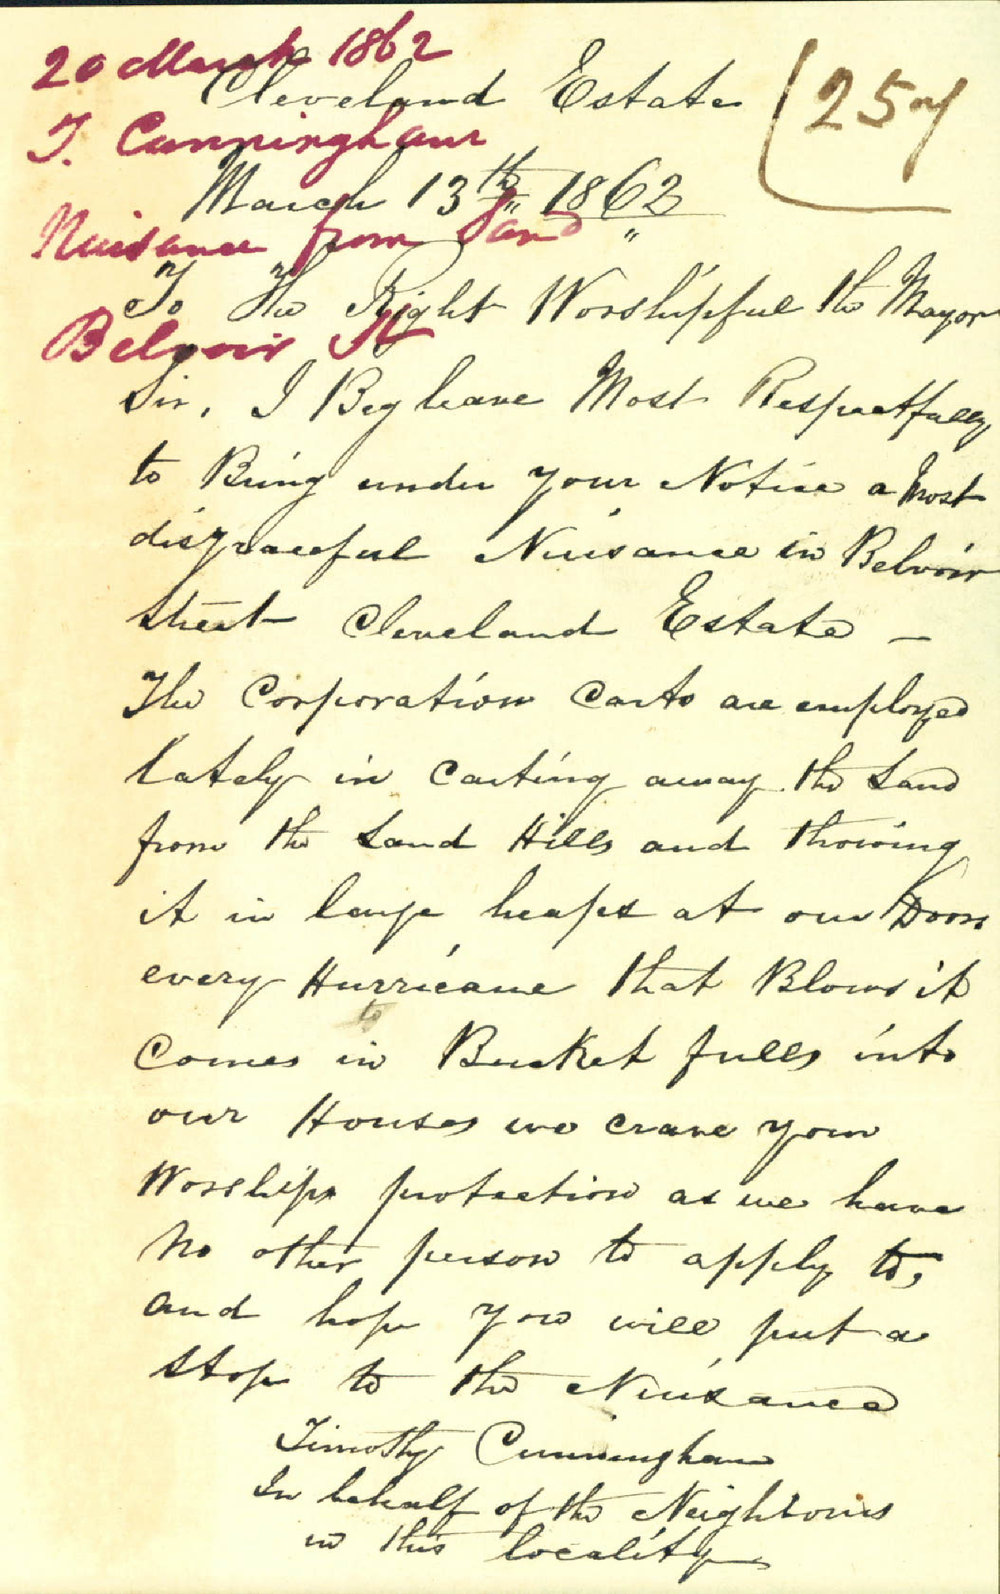 20 March 1862
Cleveland Estate
257
T. Cunningham
March 13th 1862
Nuisance from Sand
To The Right Worshipful the Mayor
Belvoir St
Sir, I Beg leave Most Respectfully
to Bring under your Notice a Most
disgraceful Nuisance in Belvoir
street Cleveland Estate —
The Corporation Carts are employed
lately in Carting away the Sand
from the Sand Hills and throwing
it in large heaps at our Doors
every Hurricane that Blows it
to
Comes in Bucket fulls into
our Houses we crave your
Worships protection as we have
No other person to apply to,
and hope you will put a
stop to the Nuisance
Timothy Cunningham
In behalf of the Neighbours
in this locality